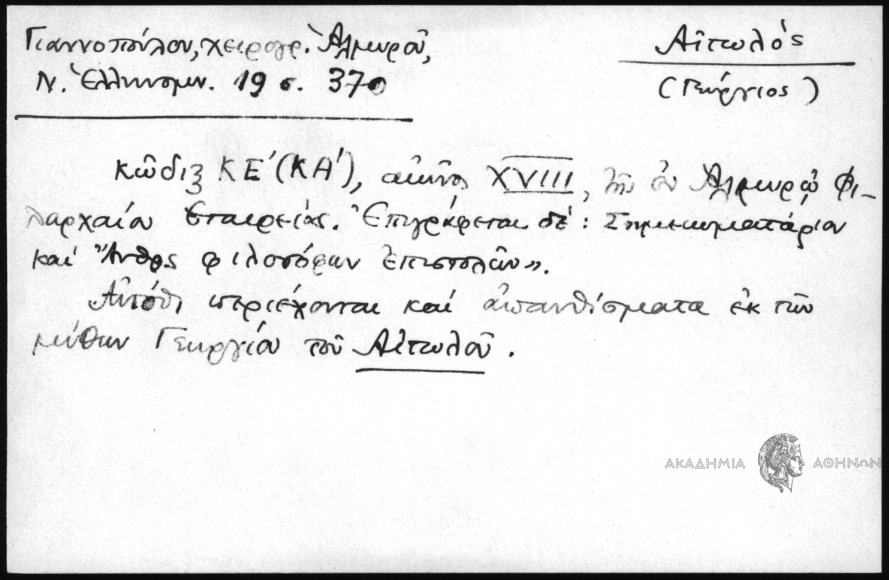 Γιαννοπούλου, χειρογρ. Ἁλμυροῦ,
Ν. Ἑλληνομν. 19 σ. 370
Αἰτωλός
(Γεώργιος)
κῶδιξ ΚΕ′ (ΚΑ′), αἰῶνος XVIII, τῆς ἐν Ἁλμυρῷ Φι-
λαρχαίου Ἑταιρείας. Ἐπιγράφεται δέ: Σημειωματάριον
καὶ "Ἄνθος φιλοσόφων ἐπιστολῶν».
Αὐτόθι περιέχονται καὶ ἀπανθίσματα ἐκ τῶν
μύθων Γεωργίου τοῦ Αἰτωλοῦ.
ΑΚΑΔΗΜΙΑ ΑΘΗΝΩΝ